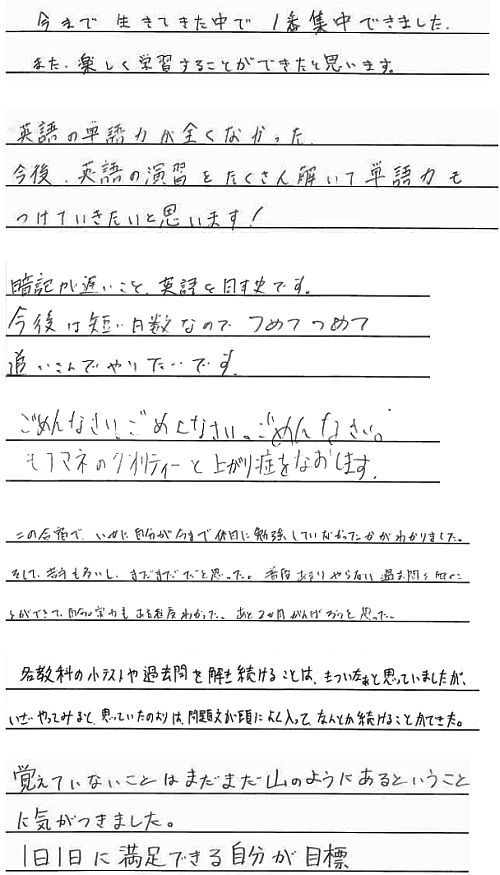 今まで 生きてきた中で 1番集中できました.
また、楽しく学習することができたと思います。
英語の単語力が全くなかった.
今後、英語の演習をたくさん解いて単語力も
つけていきたいと思います!
暗記が遅いこと、英語と日本史です。
今後は短い日数なので つめてつめて
追いこんでやりたいです.
ごめんなさい。ごめんなさい。ごめんなさい。
モノマネのクオリティーと上がり症をなおします.
この合宿で、いかに自分が今まで休日に勉強していなかったかがわかりました。
そして、苦手も多いし、まだまだだと思った。普段あまりやらない過去問を解くこ
とができて、自分の実力もある程度わかった。あと2か月がんばろうと思った。
各教科の小テストや過去問を解き続けることは、きついなぁと思っていましたが、
いざやってみると、思っていたのよりは、問題文が頭によく入って、なんとか続けることができた。
覚えていないことはまだまだ山のようにあるということ
に気がつきました。
1日1日に満足できる自分が目標